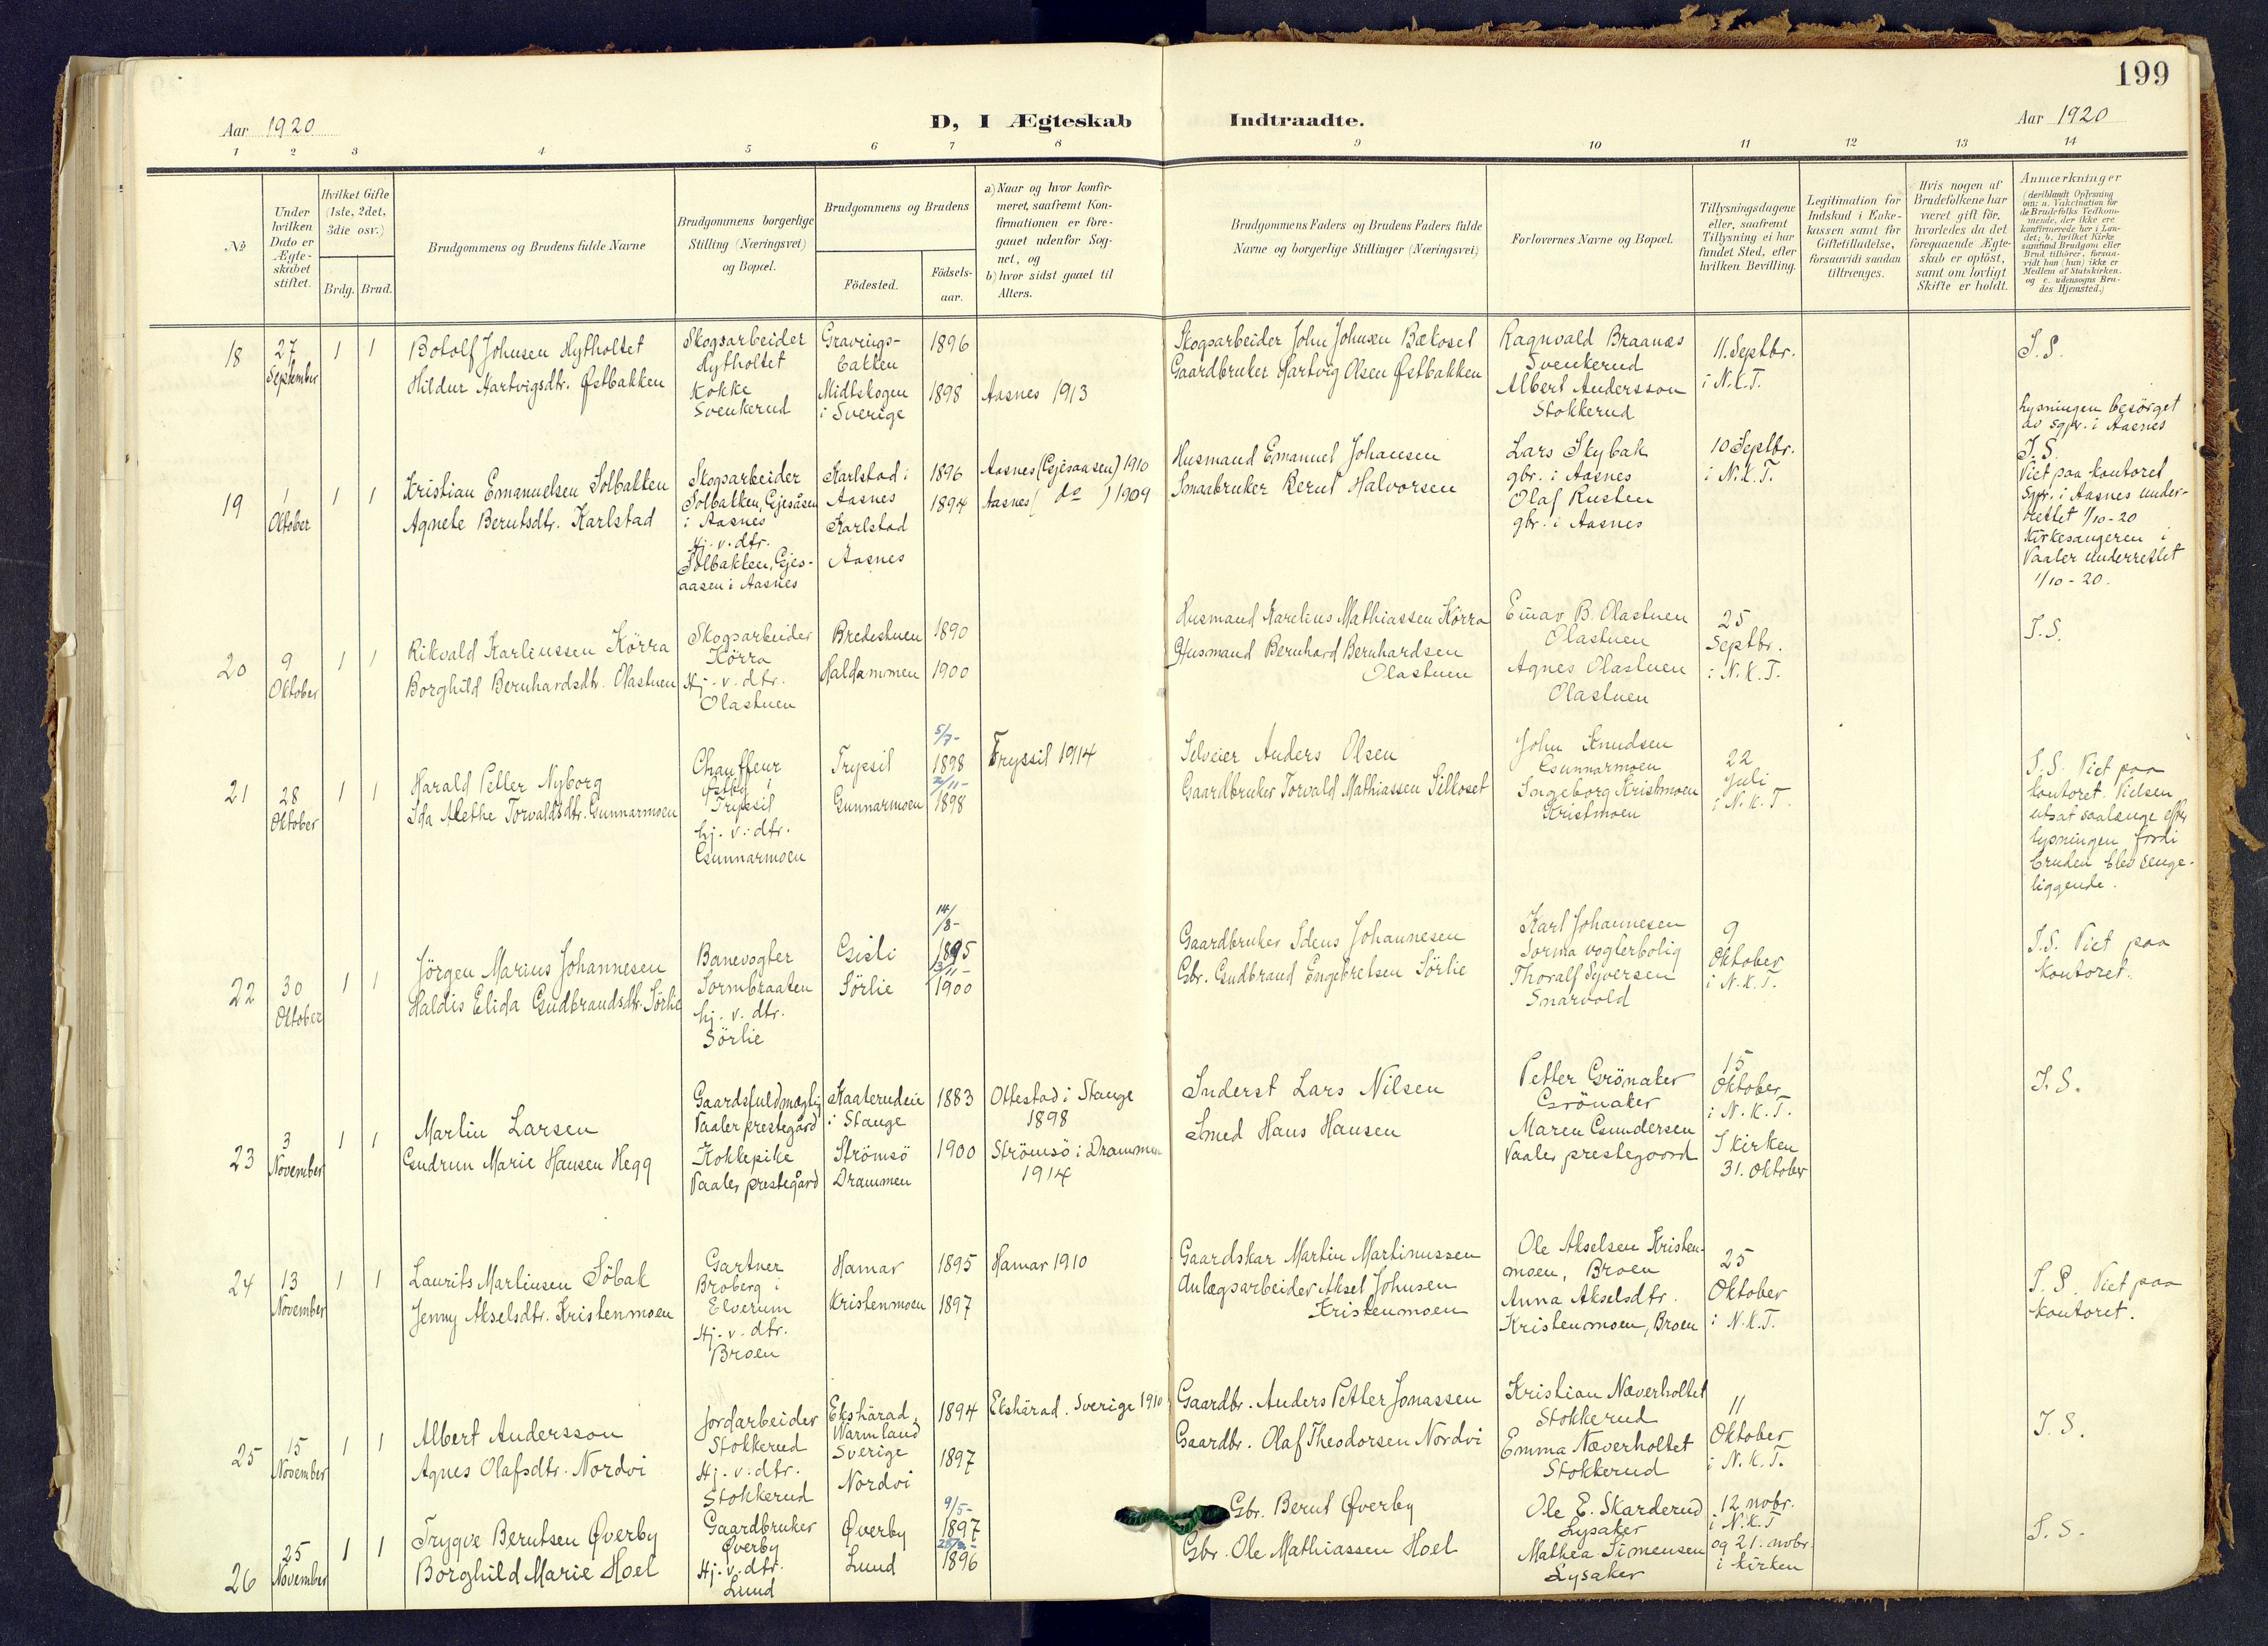 199
Aar 1920
D, I Ægteskab
Indtraadte.
Aar 1920
1 2 3 4 5 6 7 8 9 10 11 12 13 14
No
Under
hvilken
Dato er
Ægte-
skabet
stiftet.
Hvilket Gifte
(1ste, 2det,
3die osv.)
Brdg. Brud.
Brudgommens og Brudens fulde Navne
Brudgommens borgerlige
Stilling (Næringsvei)
og Bopæl.
Brudgommens og Brudens
Fødested.
Fødsels-
aar.
a) Naar og hvor konfir-
meret, saafremt Kon-
firmationen er fore-
gaaet udenfor Sog-
net, og
b) hvor sidst gaaet til
Alters.
Brudgommens Faders og Brudens Faders fulde
Navne og borgerlige Stillinger (Næringsvei)
Forlovernes Navne og Bopæl.
Tillysningsdagene
eller, saafremt
Tillysning ei har
fundet Sted, efter
hvilken Bevilling.
Legitimation for
Indskud i Enke-
kassen samt for
Giftetilladelse,
forsaavidt saadan
tiltrænges.
Hvis nogen af
Brudefolkene har
været gift før,
hvorledes da det
foregaaende Ægte-
skab er opløst,
samt om lovligt
Skifte er holdt.
Anmærkninger
(deriblandt Oplysning
om: a. Vakcination for
de Brudefolks Vedkom-
mende, der ikke ere
konfirmerede her i Lan-
det; b. hvilket Kirke
samfund Brudgom eller
Brud tilhører, forsaa-
vidt han (hun) ikke er
Medlem af Statskirken.
og c. udensogns Bru-
des Hjemsted.)
18
27
September
1 1
Botolf Johnsen Hytholtet
Hildur Hartvigsdtr. Østbakken
Skogsarbeider
Hytholtet
Kokke
Svenkerud
Gravings-
bakken
Midtskogen
i Sverige
1896
1898
Aasnes 1913
Skogsarbeider John Johnsen Bækoset
Gaardbruker Hartvig Olsen Østbakken
Ragnvald Braanæs
Svenkerud
Albert Andersson
Stokkerud
11. Septbr.
i N.K.T.
I.S.
Lysningen besörget
av sgpr. i Aasnes
19
1
Oktober
1 1
Kristian Emanuelsen Solbakken
Agnete Berntsdtr. Karlstad
Skogsarbeider
Solbakken, Gjesåsen
i Aasnes
Hj. v. dtr.
Solbakken, Gjes-
aasen i Aasnes
Karlstad i
Aasnes
Karlstad
Aasnes
1896
1894
Aasnes (Gjesaasen) 1910
Aasnes ( do ) 1909
Husmand Emanuel Johansen
Smaabruker Bernt Halvorsen
Lars Skybak
gbr. i Aasnes
Olaf Rusten
gbr. i Aasnes
10 Septbr.
i N.K.T.
I.S.
Viet paa kontoret
Sgpr. i Aasnes under-
rettet 1/10-20
Kirkesangeren i
Vaaler underrettet
1/10-20.
20
9
Oktober
1 1
Rikvald Karlinssen Körra
Borghild Bernhardsdtr. Olastuen
Skogsarbeider
Körra
Hj. v. dtr.
Olastuen
Bredestuen
Haldammen
1890
1900
Husmand Karelius Mathiassen Körra
Husmand Bernhard Bernhardsen
Olastuen
Einar B. Olastuen
Olastuen
Agnes Olastuen
Olastuen
25
Septbr.
i N.K.T.
I.S.
21
28
Oktober
1 1
Harald Petter Nyborg
Ida Alethe Torvaldsdtr. Gunnarmoen
Chauffeur
Østby i
Trysil
hj. v. dtr.
Gunnarmoen
Trysil
Gunnarmoen
5/7-
1898
1898
Tryssil 1914
Selveier Anders Olsen
Gaardbruker Torvald Mathiassen Silloset
John Knudsen
Gunnarmoen
Ingeborg Kristmoen
Kristmoen
22
Juli
i N.K.T.
I.S. Viet paa
kontoret. Vielsen
utsat saalænge efter
lysningen fordi
bruden blev senge-
liggende.
22
30
Oktober
1 1
Jörgen Marius Johannesen
Haldis Elida Gudbrandsdtr. Sörlie
Banevogter
Sormbraaten
hj. v. dtr.
Sörlie
Gisti
Sörlie
14/8-
1895
13/11-
1900
Gaardbruker Idens Johannesen
Gbr. Gudbrand Engebretsen Sörlie
Karl Johannesen
Sorma vogterbolig
Thoralf Syversen
Snarvold
9
Oktober
i N.K.T.
I.S. Viet paa
kontoret.
23
3
November
1 1
Martin Larsen
Gudrun Marie Hansen Hegg
Gaardsfuldmægtig
Vaaler prestegård
Kokkepike
Vaaler prestegård
Kaaterudeie
i Stange
Strömsö
Drammen
1883
1900
Ottestad i Stange
1898
Strömsö i Drammen
1914
Inderst Lars Nilsen
Smed Hans Hansen
Petter Grönaker
Grönaker
Maren Gundersen
Vaaler prestegaard
15
Oktober
i N.K.T.
I kirken
31. Oktober
I.S.
24
13
November
1 1
Laurits Martinsen Söbak
Jenny Akselsdtr. Kristenmoen
Gartner
Broberg i
Elverum
Hj. v. dtr.
Broen
Hamar
Kristenmoen
1895
1897
Hamar 1910
Gaardskar Martin Martinussen
Anlægsarbeider Aksel Johnsen
Kristenmoen
Ole Akselsen Kristen-
moen, Broen
Anna Akselsdtr.
Kristenmoen, Broen
25
Oktober
i N.K.T.
I.S. Viet paa
kontoret.
25
15
November
1 1
Albert Andersson
Agnes Olafsdtr. Nordvi
Jordarbeider
Stokkerud
Hj. v. dtr.
Stokkerud
Ekshärad,
Warmland
Sverige
Nordvi
1894
1897
Ekshärad. Sverige 1910
Gaardbr. Anders Petter Jonassen
Gaardbr. Olaf Theodorsen Nordvi
Kristian Næverholtet
Stokkerud
Emma Næverholtet
Stokkerud
11
Oktober
i N.K.T.
I.S.
26
25
November
1 1
Trygve Berntsen Øverby
Borghild Marie Hoel
Gaardbruker
Øverby
Hj. v. dtr.
Lund
Øverby
Lund
9/5-
1897
1896
Gbr. Bernt Øverby
Gbr. Ole Mathiassen Hoel
Ole E. Skarderud
Lysaker
Mathea Simensen
Lysaker
12 novbr.
i N.K.T
og 21. novbr.
i kirken
I.S.